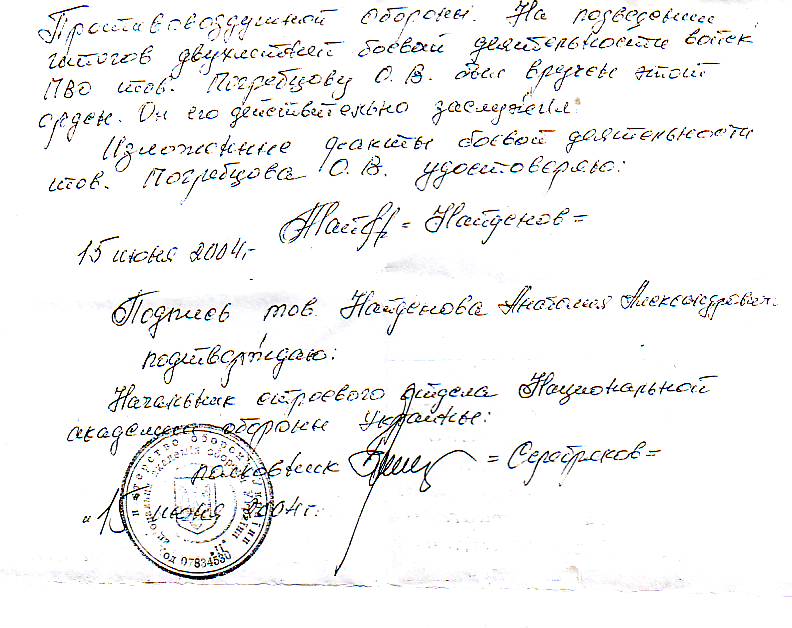 Противовоздушной обороны. На подведении
итогов двухлетней боевой деятельности войск
ПВО тов. Погребцову О. В. был вручен этот
орден. Он его действительно заслужил.
Изложенные факты боевой деятельности
тов. Погребцова О. В. удостоверяю:
= Найденов =
15 июня 2004г.
Подпись тов. Найденова Анатолия Александрович.
подтверждаю:
Начальник строевого отдела Национальной
академии обороны Украины:
полковник = Серебряков =
"15 июня 2004г.
Міністерство оборони України
Національна академія оборони України
код 07834530